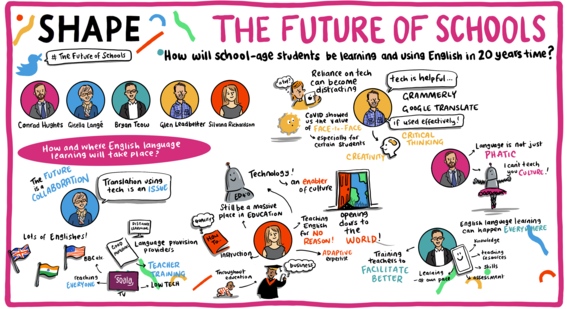 SHAPE
THE FUTURE OF SCHOOLS
# The Future of Schools
How will school-age students be learning and using English in 20 years time?
Conrad Hughes
Gisela Langé
Bryan Teow
Glen Leadbetter
Silvana Richardson
Reliance on tech
can become
distracting
tech is helpful...
GRAMMERLY
GOOGLE TRANSLATE
if used effectively!
COVID showed
us the value
of FACE-to-FACE
especially for
certain students
CREATIVITY
CRITICAL
THINKING
Language is not just
PHATIC
I can't teach
you CULTURE!
How and where English language
learning will take place?
The FUTURE
is a
COLLABORATION
Translation using
tech is an ISSUE
Technology!
an enabler
of culture
Still be a massive
place in EDUCATION
opening
doors to
the WORLD!
Teaching
English for
NO
REASON!
ADAPTIVE
expertise
English language learning
can happen EVERYWHERE
Knowledge
teaching
resources
skills
assessment
Learning
own pace
Training
teachers to
FACILITATE
BETTER
Lots of Englishes!
DISTANCE
LEARNING
Language provision
providers
TEACHER
TRAINING
LOW TECH
teaching
EVERYONE
TV
INSTRUCTION
Throughout
education
business